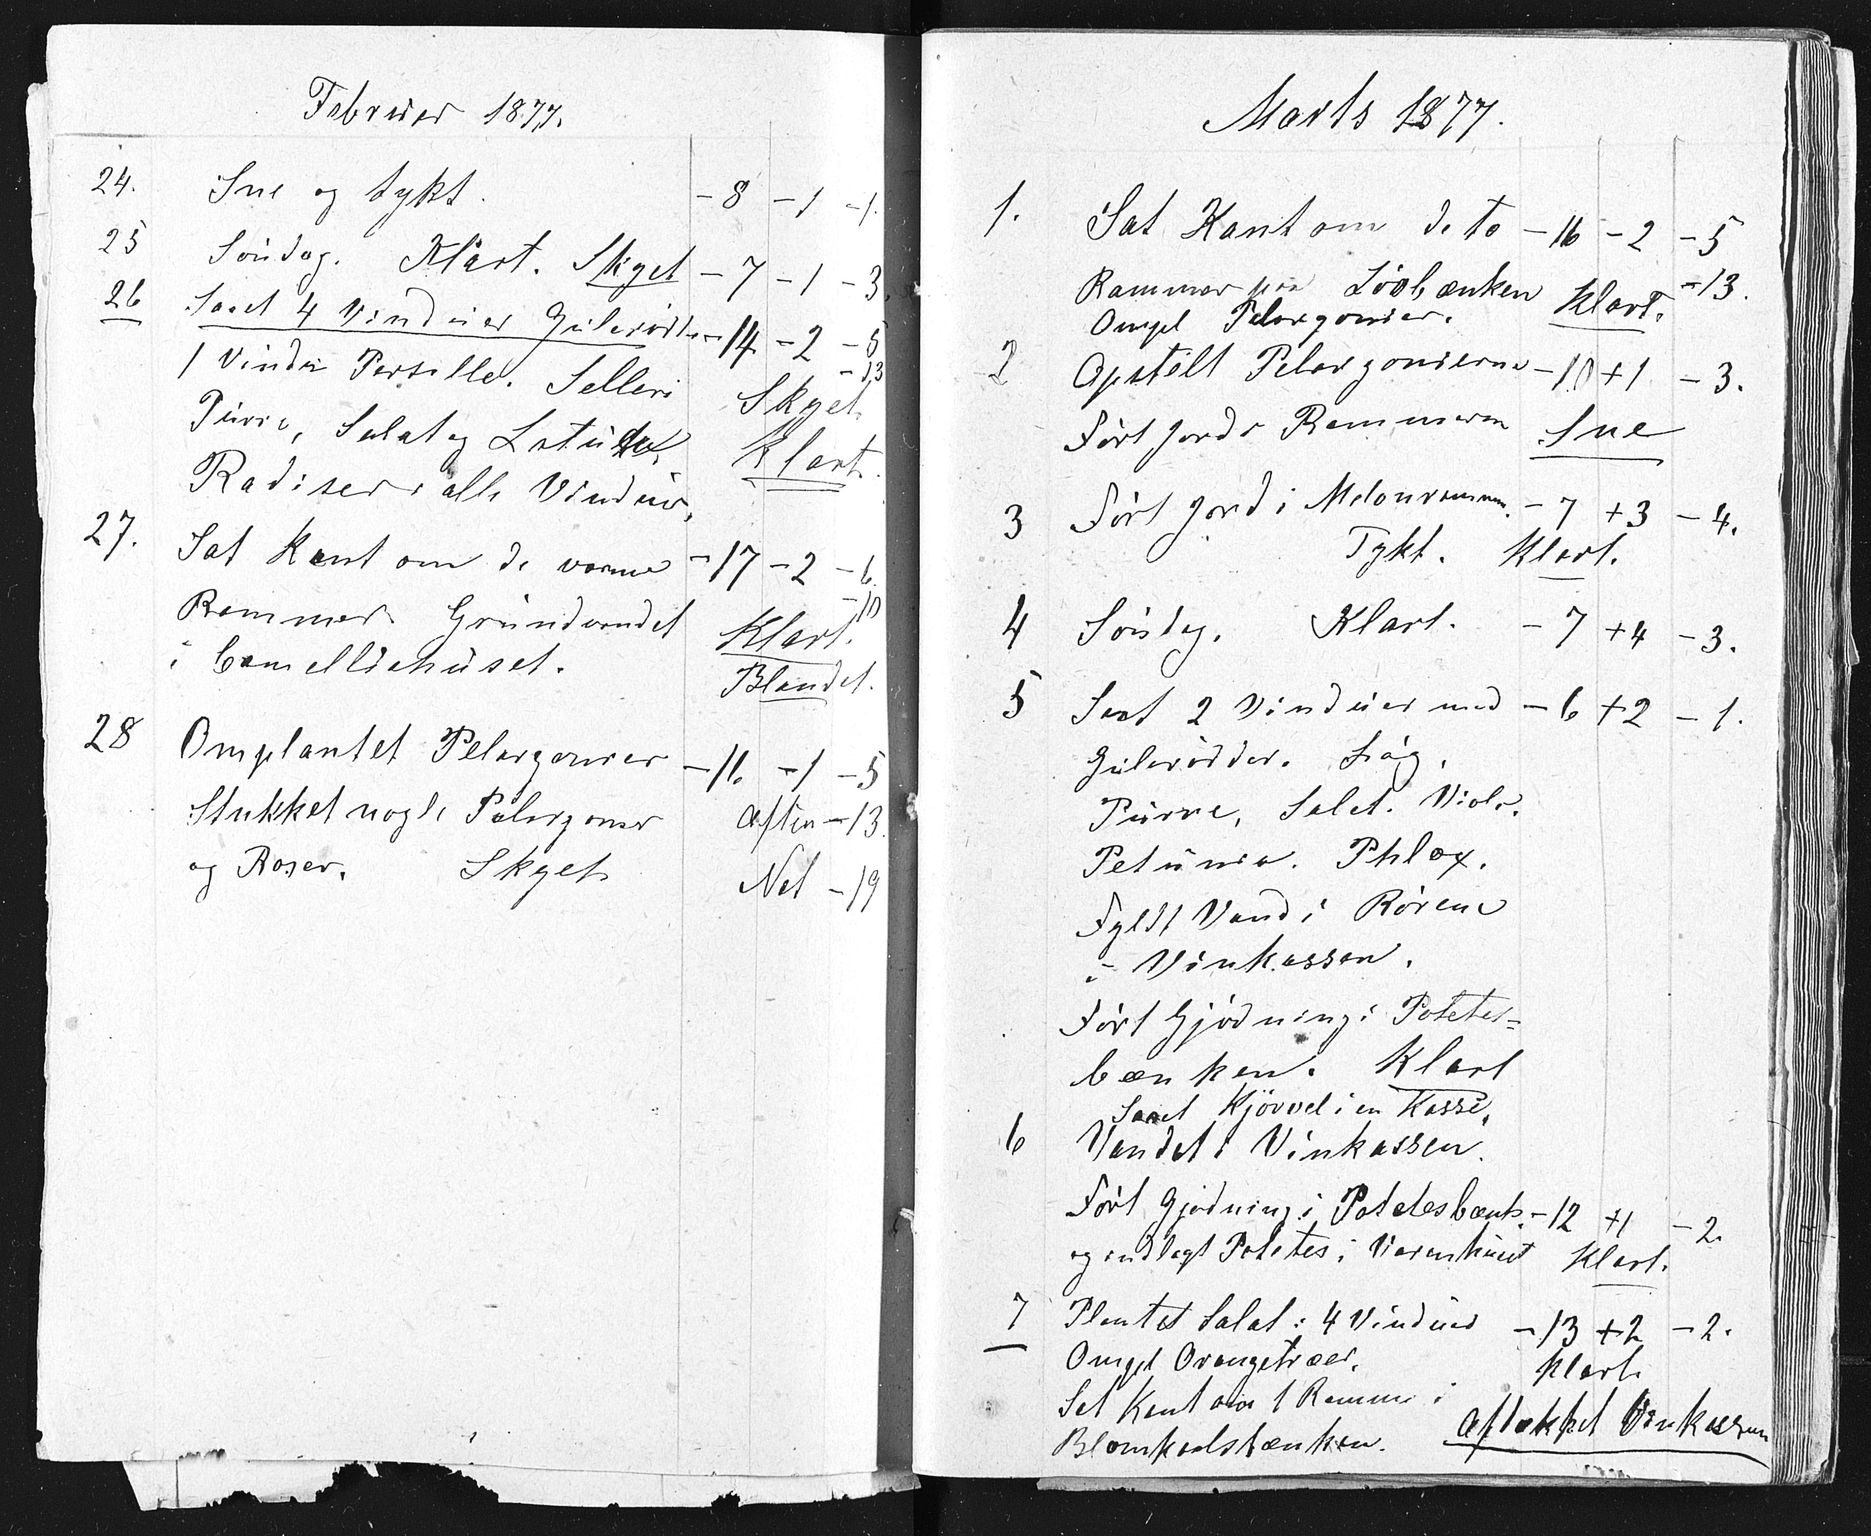 Februar 1877.
24. Sne og tykt. -8 -1 -1.
25 Söndag. Klart. Skyet -7 -1 -3.
26 Saaet 4 Vinduer Gulerödder -14 -2 -5
-13
1 Vindu Persille. Selleri Skyet
Purre, Salat og Klart.
Radiser i alle Vinduer.
27. Sat Kant om de varme -17 -2 -6.
-10
Rammer. Grundvandet Klart.
i Camelliehuset. Blandet.
28 Omplantet Pelargonier -11. -1 -5
Stukket nogle Pelargonier Aften -13.
og Roser. Skyet Nat -19
Marts 1877.
1. Sat Kant om de to -16 -2 -5
-13.
Rammer paa Löobænken Klart.
Ompl Pelargonier.
2 Opstelt Pelargonierne -10 +1 -3.
Fört Jord i Rammerne Sne
3 Fört Jord i Melonrammen. -7 +3 -4.
Tykt. Klart.
4 Söndag. Klart. -7 +4 -3.
5 Saat 2 Vinduer med -6 +2 -1.
Gulerödder. Lög,
Purre, Salat. Viola.
Petunia. Phlox.
Fyldt Vand i Rörene
i Vinkassen.
Fört Gjödning i Potetes=
bænken. Klart
Saaet Kjörvel i en Kasse.
6 Vandet i Vinkassen.
Fört Gjödning i Potetesbænk. -12 +1 -2.
og indlagt Potetes i Varmhuset Klart.
7 Plantet Salat i 4 Vinduer -13 +2 -2.
Ompl Orangetræer. Klart.
Sat Kant om 1 Ramme i
Aftækket Vinkassen
Blomkaalsbænken.